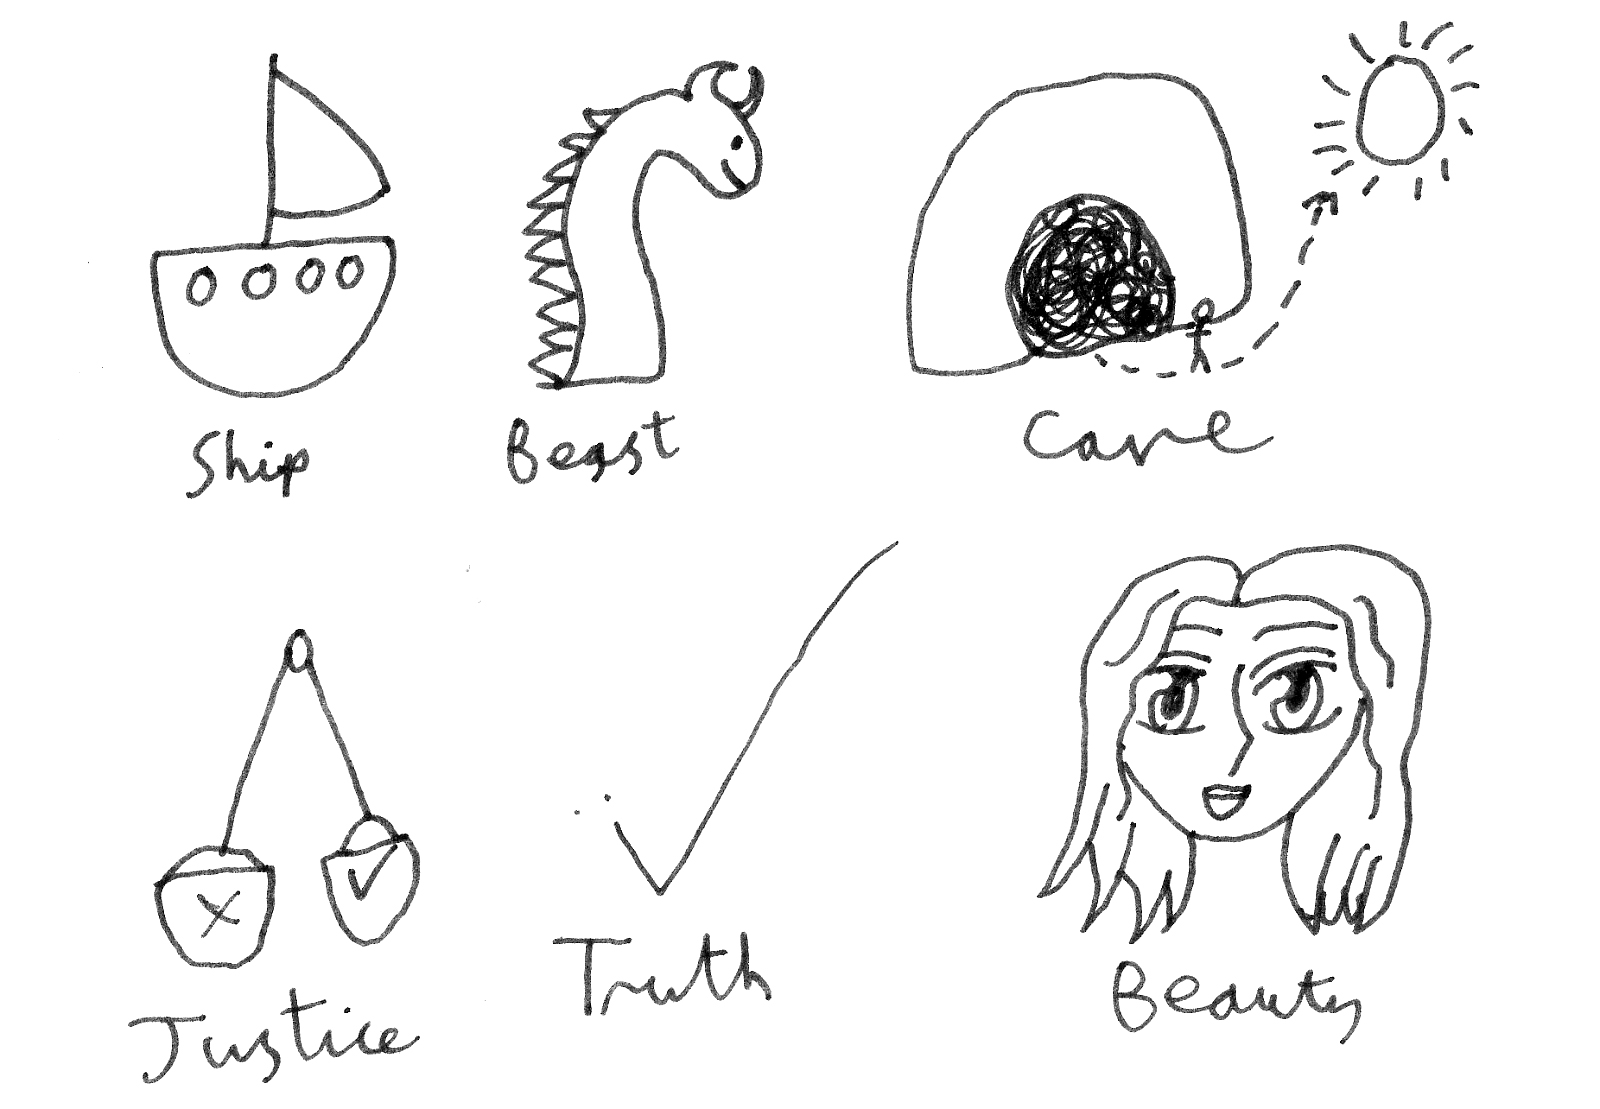 Ship
Beast
Cave
Justice
Truth
Beauty